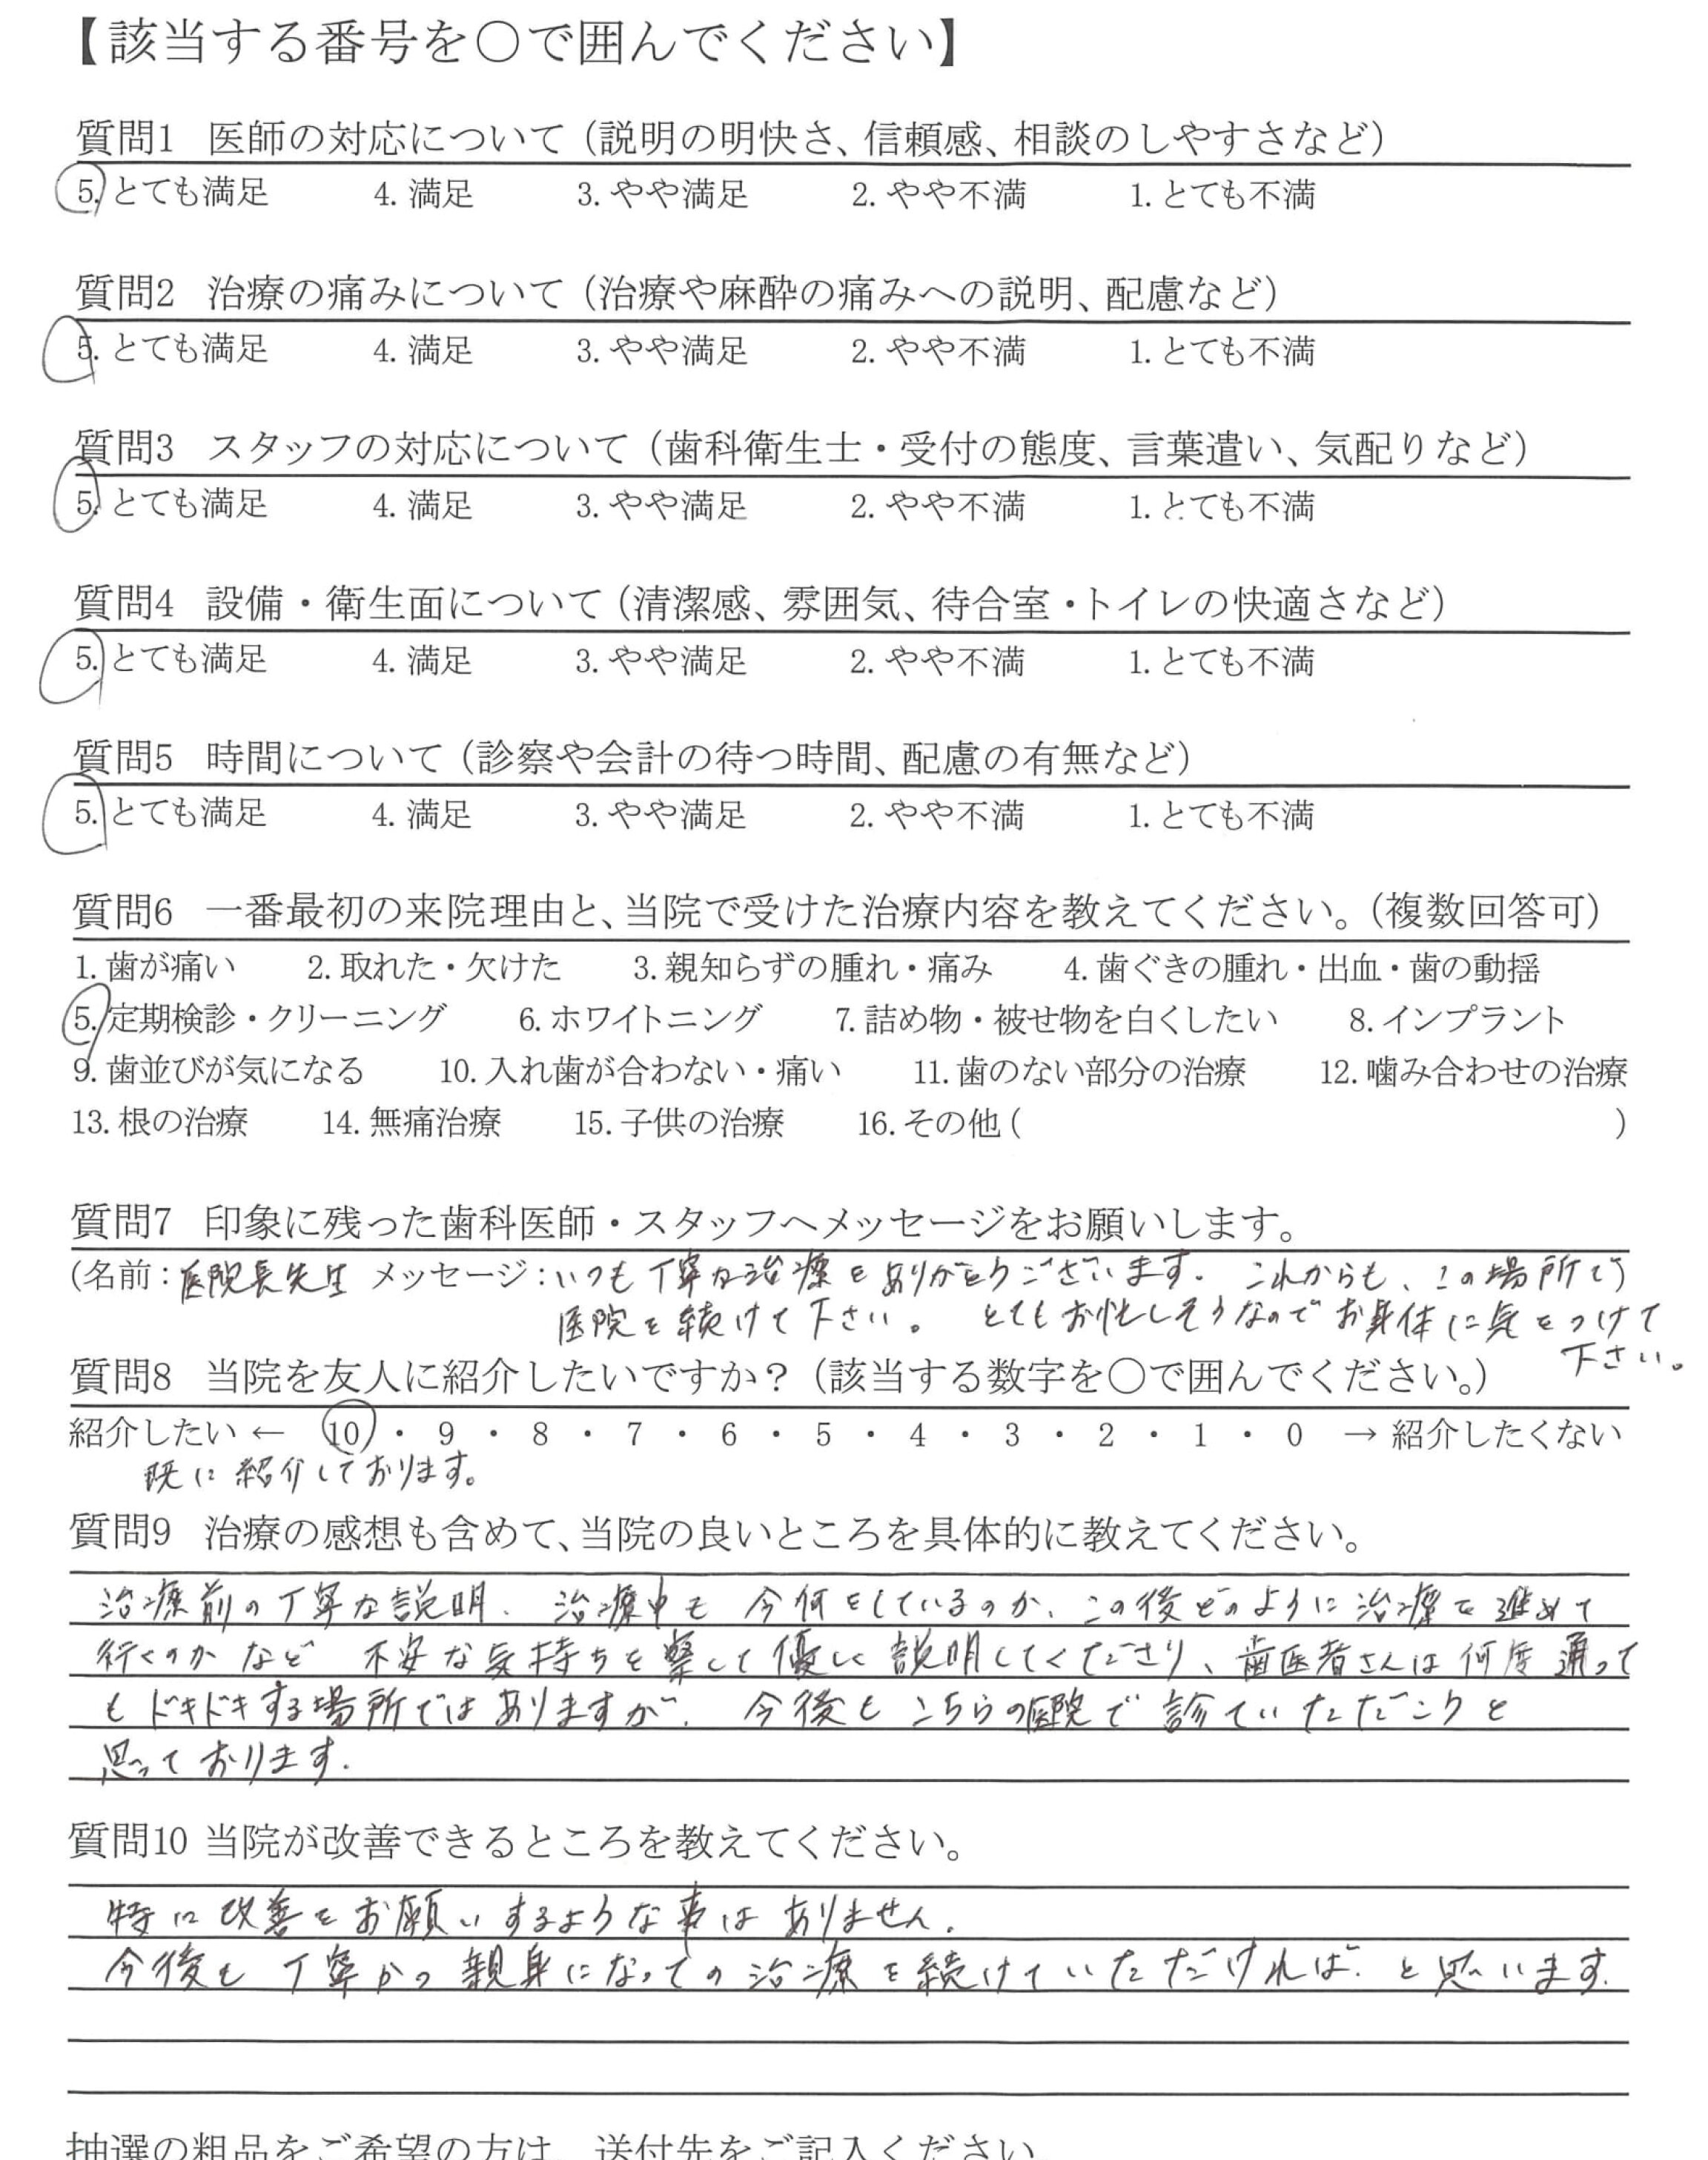 【該当する番号を〇で囲んでください】
質問1 医師の対応について（説明の明快さ、信頼感、相談のしやすさなど）
5. とても満足 4. 満足 3. やや満足 2. やや不満 1. とても不満
質問2 治療の痛みについて（治療や麻酔の痛みへの説明、配慮など）
5. とても満足 4. 満足 3. やや満足 2. やや不満 1. とても不満
質問3 スタッフの対応について（歯科衛生士・受付の態度、言葉遣い、気配りなど）
5. とても満足 4. 満足 3. やや満足 2. やや不満 1. とても不満
質問4 設備・衛生面について（清潔感、雰囲気、待合室・トイレの快適さなど）
5. とても満足 4. 満足 3. やや満足 2. やや不満 1. とても不満
質問5 時間について（診察や会計の待つ時間、配慮の有無など）
5. とても満足 4. 満足 3. やや満足 2. やや不満 1. とても不満
質問6 一番最初の来院理由と、当院で受けた治療内容を教えてください。（複数回答可）
1. 歯が痛い 2. 取れた・欠けた 3. 親知らずの腫れ・痛み 4. 歯ぐきの腫れ・出血・歯の動揺
5. 定期検診・クリーニング 6. ホワイトニング 7. 詰め物・被せ物を白くしたい 8. インプラント
9. 歯並びが気になる 10. 入れ歯が合わない・痛い 11. 歯のない部分の治療 12. 噛み合わせの治療
13. 根の治療 14. 無痛治療 15. 子供の治療 16. その他（ ）
質問7 印象に残った歯科医師・スタッフへメッセージをお願いします。
（名前：医院長先生 メッセージ：いつも丁寧な治療をありがとうございます。これからも、この場所で）
医院を続けて下さい。 とてもお忙しそうなのでお身体に気をつけて
下さい。
質問8 当院を友人に紹介したいですか？（該当する数字を〇で囲んでください。）
紹介したい ← 10 ・ 9 ・ 8 ・ 7 ・ 6 ・ 5 ・ 4 ・ 3 ・ 2 ・ 1 ・ 0 → 紹介したくない
既に紹介しております。
質問9 治療の感想も含めて、当院の良いところを具体的に教えてください。
治療前の丁寧な説明、治療中も今何をしているのか、この後どのように治療を進めて
行くのかなど 不安な気持ちを察して優しく説明してくださり、歯医者さんは何度通って
もドキドキする場所ではありますが、今後もこちらの医院で診ていただこうと
思っております。
質問10 当院が改善できるところを教えてください。
特に改善をお願いするような事はありません。
今後も丁寧かつ親身になっての治療を続けていただければ、と思います。
抽選の粗品をご希望の方は、送付先をご記入ください。